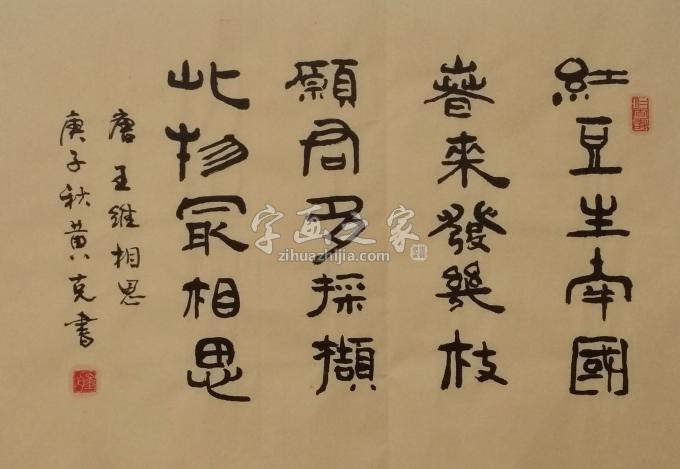 紅豆生南國
春來發幾枝
願君多採擷
此物最相思
唐王維相思
庚子秋黄克書
字画之家
zihuazhijia.com